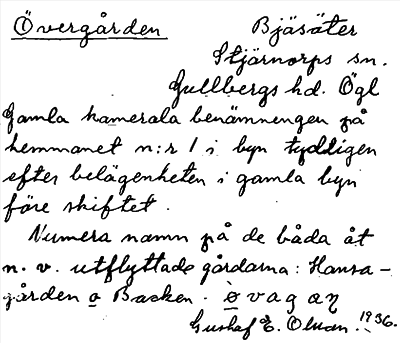 Övergården Bjäsäter
Stjärnorps sn.
Gullbergs hd. Ögl
Gamla kamerala benämningen på
hemmanet n:r 1 i byn tydligen
efter belägenheten i gamla byn
före skiftet.
Numera namn på de båda åt
n. v. utflyttade gårdarna: Hansa-
gården o Backen.
Gustaf E. 1936.